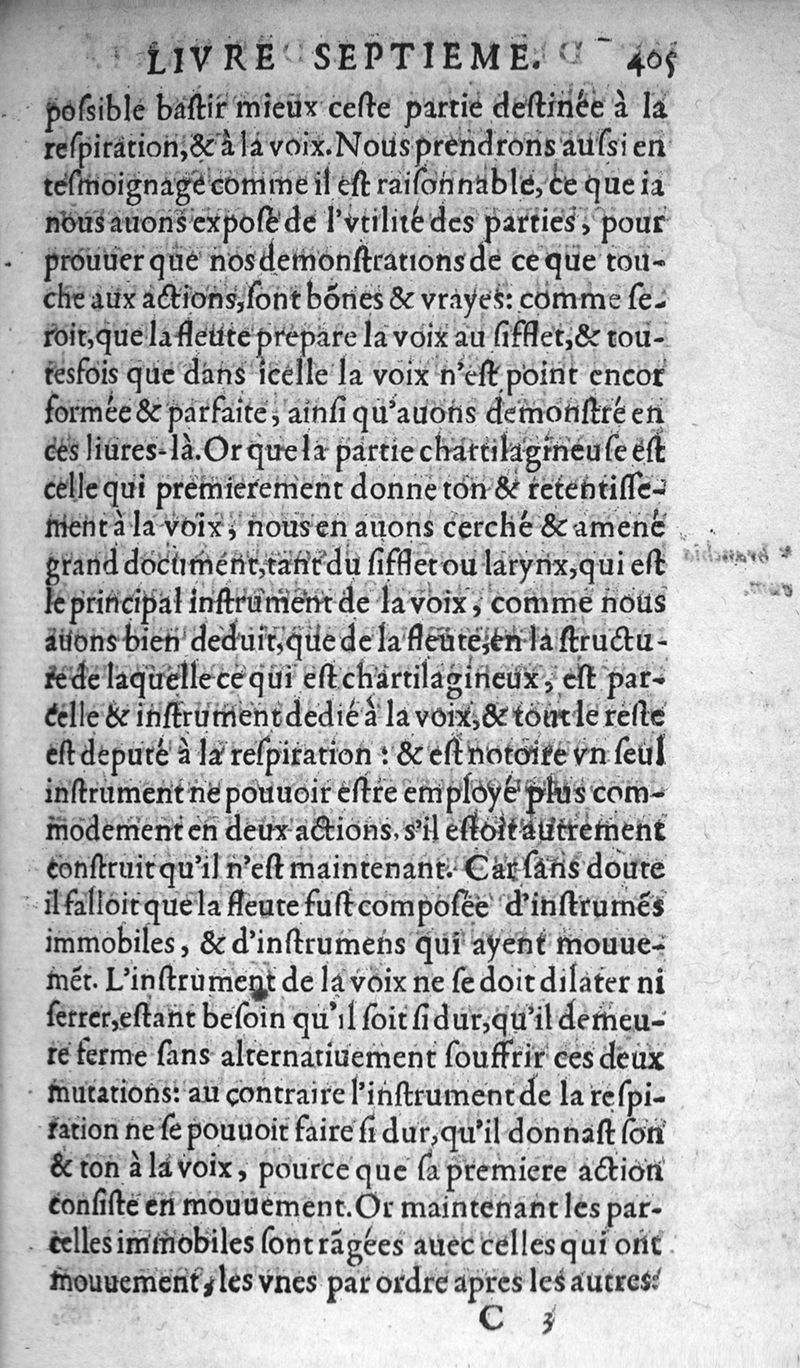 LIVRE SEPTIEME. 405
poſsible baſtir mieux ceſte partie deſtinée à la
reſpiration,& à la voix. Nous prendrons auſsi en
teſmoignage comme il eſt raiſonnable, ce que ia
nous auons expoſé de l'vtilité des parties, pour
prouuer que nos demonſtrations de ce que tou-
che aux actions, ſont bōnes & vrayes: comme ſe-
roit, que la fleute prepare la voix au ſifflet,& tou-
tesfois que dans icelle la voix n'eſt point encor
formée & parfaite, ainſi qu'auons demonſtré en
ces liures-là. Or que la partie chartilagineuſe eſt
celle qui premierement donne ton & retentiſſe-
ment à la voix, nous en auons cerché & amené
grand document, tant du ſifflet ou larynx, qui eſt
le principal inſtrument de la voix, comme nous
auons bien deduit, que de la fleute, en la ſtructu-
re de laquelle ce qui eſt chartilagineux, eſt par-
celle & inſtrument dedié à la voix,& tout le reſte
eſt deputé à la reſpiration : & eſt notoire vn ſeul
inſtrument ne pouuoir eſtre employé plus com-
modement en deux actions, s'il eſtoit autrement
conſtruit qu'il n'eſt maintenant. Car ſans doute
il falloit que la fleute fuſt compoſée d'inſtrumēs
immobiles, & d'inſtrumens qui ayent mouue-
mēt. L'inſtrument de la voix ne ſe doit dilater ni
ſerrer, eſtant beſoin qu'il ſoit ſi dur, qu'il demeu-
re ferme ſans alternatiuement ſouffrir ces deux
mutations: au contraire l'inſtrument de la reſpi-
ration ne ſe pouuoit faire ſi dur, qu'il donnaſt ſon
& ton à la voix, pource que ſa premiere action
conſiſte en mouuement. Or maintenant les par-
celles immobiles ſont rāgées auec celles qui ont
mouuement, les vnes par ordre apres les autres:
C 3